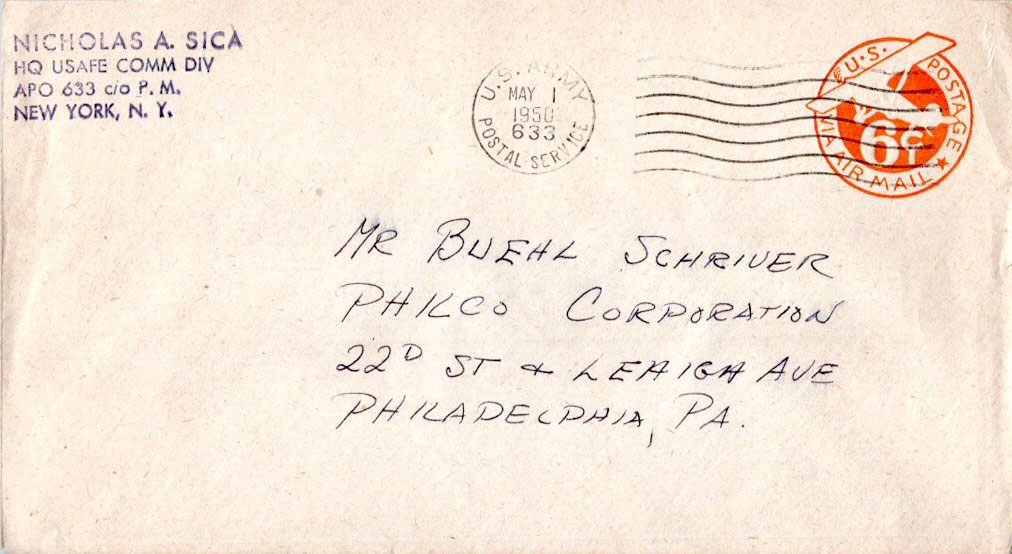 NICHOLAS A. SICA
HQ USAFE COMM DIV
APO 633 c/o P. M.
NEW YORK, N. Y.
U.S. ARMY
MAY 1
1950
633
POSTAL SERVICE
U.S. POSTAGE
6¢
VIA AIR MAIL
MR BUEHL SCHRIVER
PHILCO CORPORATION
22D ST & LEHIGH AVE
PHILADELPHIA, PA.